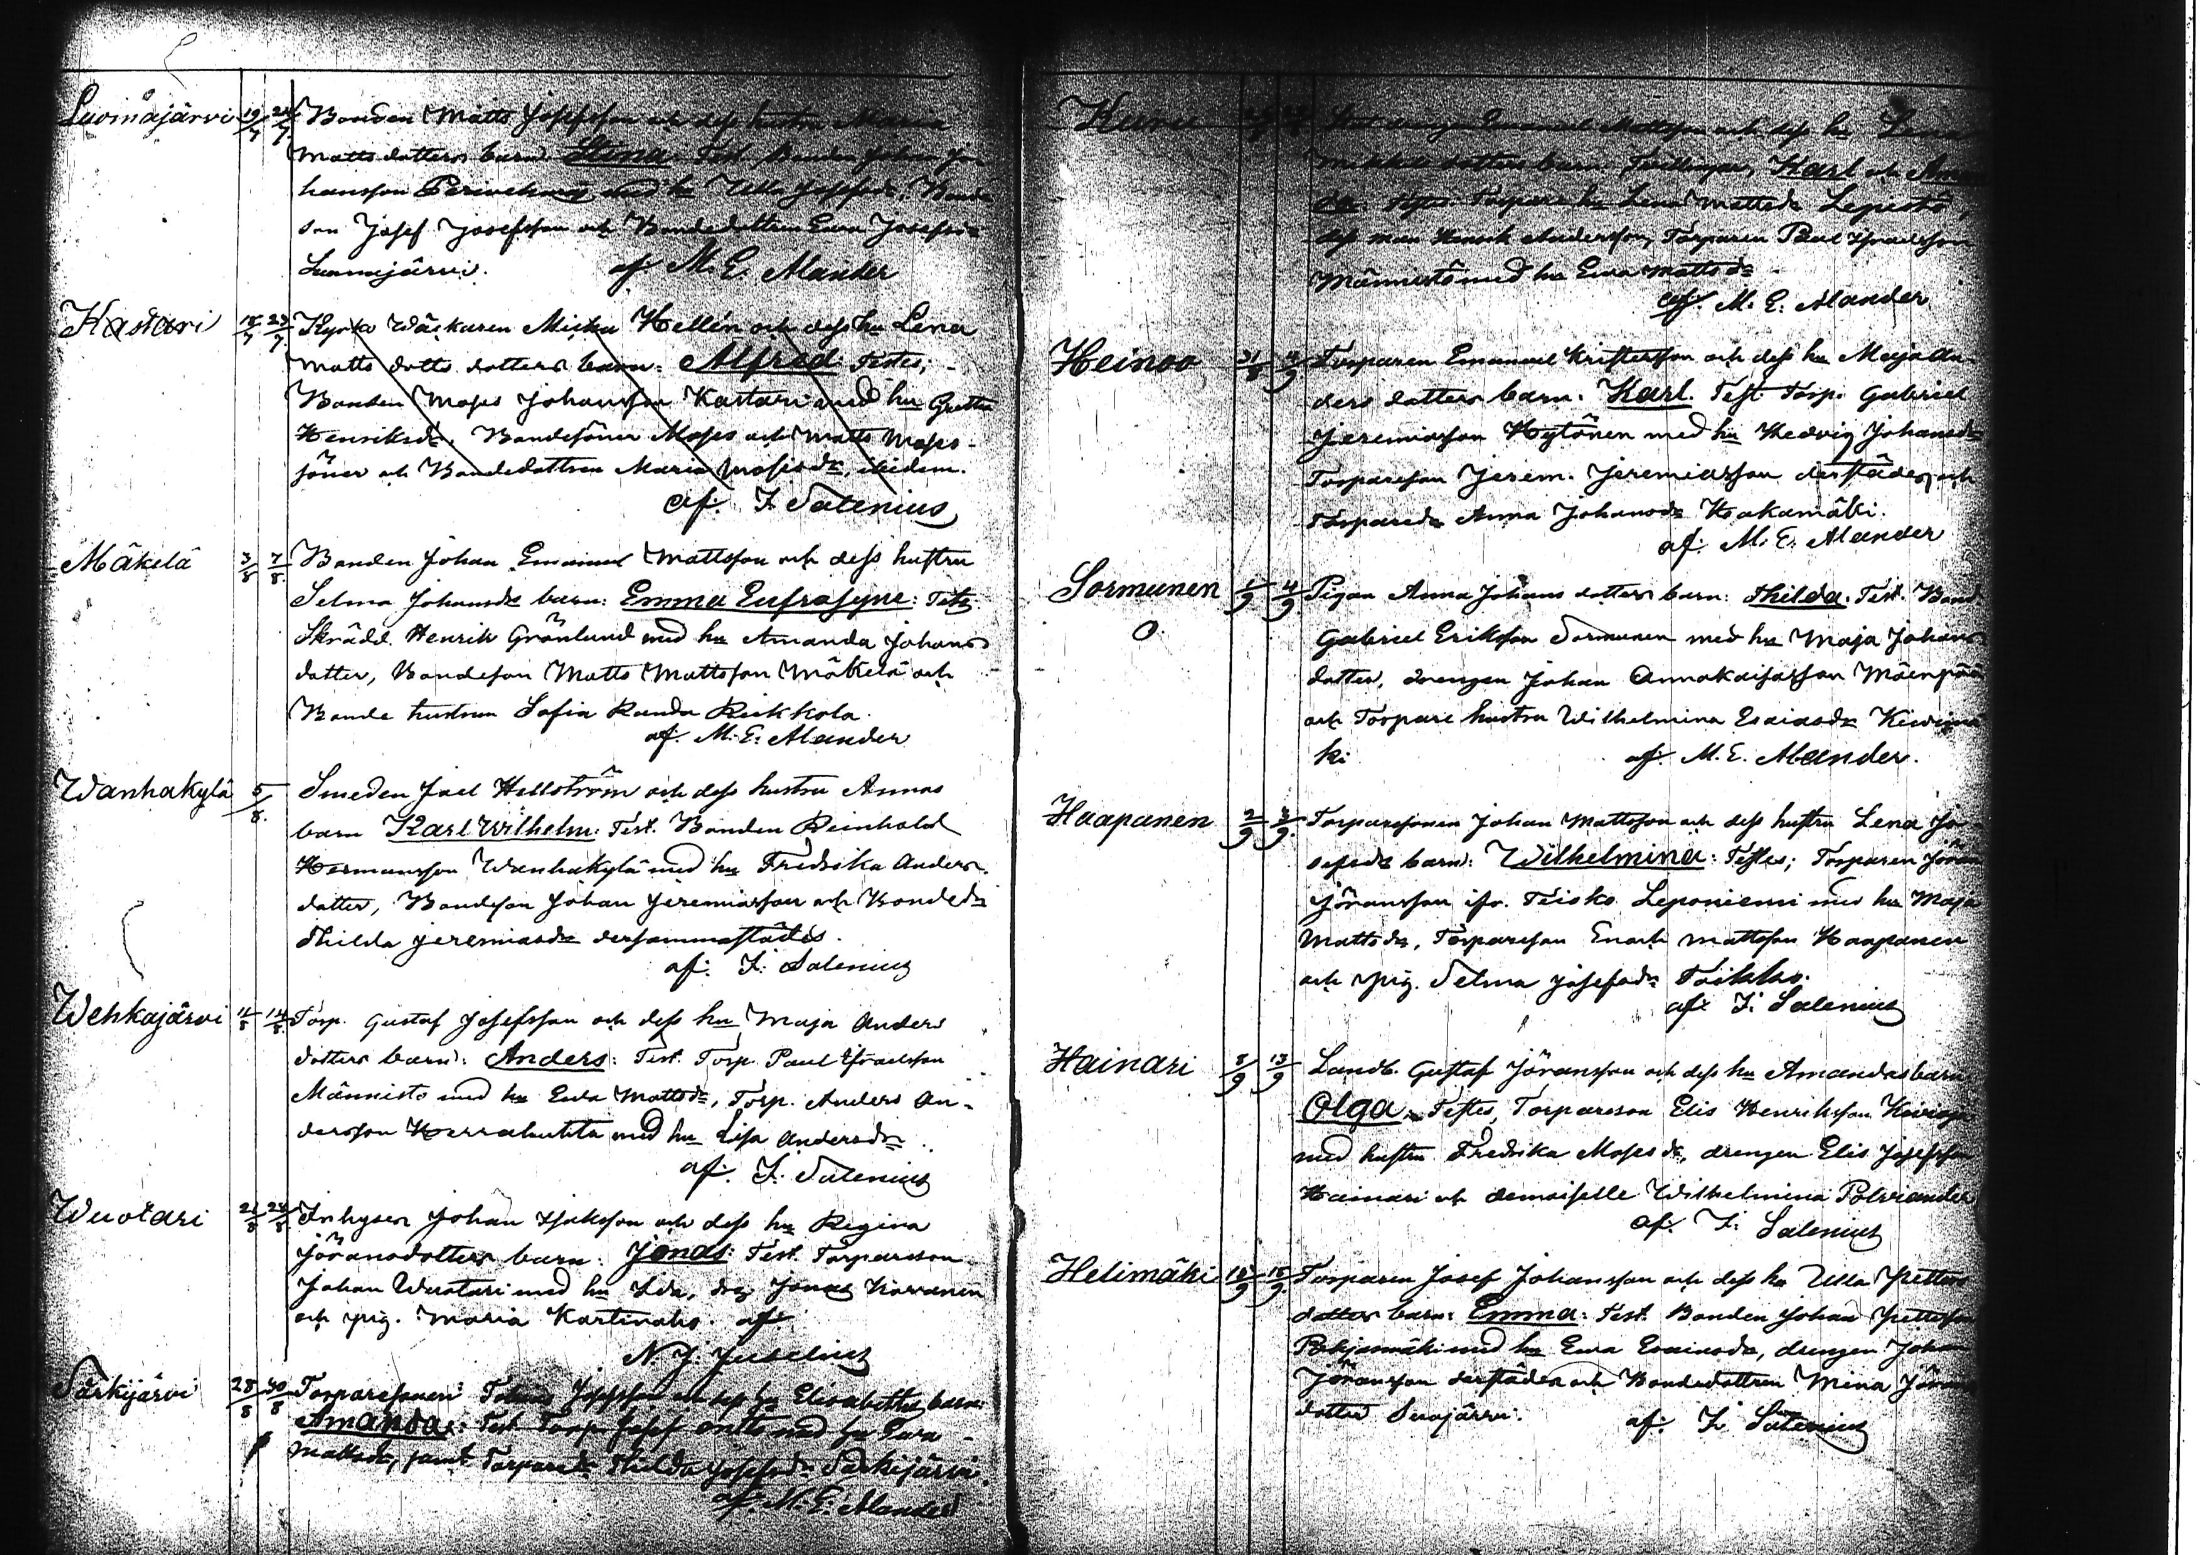 Luomajärvi 19/7 24/7 Bonden Matts Josefsson och dess hustru Maria
Matts dotters barn Stina. Test. Bonden Johan Jo-
hansson med hu Ulla Josefsdr, Bonde
son Josef Josefsson och Bondedottren Eva Josefsdr
Luomajärvi. af M. E. Alander
Kastari 18/7 25/7 Kyrko Wäktaren Micka Hellén och dess hu Lena
Matts dotts dotters barn: Alfred: Testes;
Bonden Moses Johansson Kastari med hu Gretta
Henriksdr, Bondesöner Moses och Matts Moses-
söner och Bondedottren Maria Mosisdr, ibidem.
af. F. Salenius
Mäkelä 3/8 7/8 Bonden Johan Emanuel Mattsson och dess hustru
Selma Johansdr barn: Emma Eufrosyne: Tets.
Skrädd. Henrik Grönlund med hu Amanda Johans
dotter, Bondeson Matts Mattsson Mäkelä och
Bonde hustrun Sofia Runda Rickkola.
af. M. E. Alander
Wanhakylä 5/8. Smeden Joel Hellström och dess hustru Annas
barn Karl Wilhelm: Test. Bonden Reinhold
Hermansson Wanhakylä med hu Fredrika Anders
dotter, Bondeson Johan Jeremiasson och Bondedr
Thilda Jeremiasdr dersammastädes.
af. F. Salenius
Wehkajärvi 12/8 14/8 Torp. Gustaf Josefsson och dess hu Maja Anders
dotters barn: Anders: Test. Torp. Paul Israelsson
Männisto med hu Eva Mattsdr, Torp. Anders An-
dersson Herrakuhta med hu Lisa Andersdr.
af. F. Salenius
Wuotari 22/8 28/8 Inhysen Johan Isaksson och dess hu Regina
Jöransdotters barn: Jonas: Test. Torpareson
Johan Wuotari med hu Ida, drg. Jonas Korvanen
och pig. Maria Kortinaho. af
N. J. Juselius
Särkijärvi 28/8 30/8 Torparesonen Josefsson och dess hu Elisabeths barn
Amanda: Test. Torp. Josef med hu Eva
Mattsdr, samt Torparedr Thilda Josefsdr Särkijärvi.
af. M. E. Alander
Kuru Emanuel Mattsson och dess hu Lena
dotters barn: Tvillingar, Karl och
Testes: Torpare hu Lena Mattsdr Lepistö,
dess man Henrik Andersson, Torparen Paul Israelsson
Männistö med hu Eva Mattsdr
af. M. E. Alander
Heinoo 31/8 4/9 Torparen Emanuel Kristersson och dess hu Maja An-
ders dotters barn: Karl. Test. Torp. Gabriel
Jeremiasson Hytönen med hu Hedvig Johansdr
Torpareson Jerem. Jeremiasson derstädes, och
Torparedr Anna Johansdr Koakamäki.
af. M. E. Alander
Sormunen 1/9 4/9 Pigan Anna Johans dotters barn: Thilda: Test. Bond.
Gabriel Eriksson Sormunen med hu Maja Johans
dotter, drengen Johan Annakaisasson Mäenpää
och Torpare hustru Wilhelmina Esaiasdr
ki af. M. E. Alander.
Haapanen 2/9 Torparesonen Johan Mattsson och dess hustru Lena Jo-
sefsdr barn: Wilhelmina: Testes; Torparen Jöran
Jöransson ifr. Teisko Leponiemi med hu Maja
Mattsdr, Torpareson Enoch Mattsson Haapanen
och pig. Selma Josefsdr Toikko.
af. F. Salenius
Hainari 8/9 13/9 Landb. Gustaf Jöransson och dess hu Amandas barn
Olga. Testes, Torpareson Elis Henriksson
med hustru Fredrika Mosesdr, drengen Elis Josefsson
Hainari och demoiselle Wilhelmina Polviander
af. F. Salenius
Helimäki 15/9 18/9. Torparen Josef Johansson och dess hu Ulla Petters
dotter barn: Emma: Test. Bonden Johan Pettersson
Pohjanmäki med hu Eva Esaiasdr, drengen Johan
Jöransson derstädes och Bondedottren Mina Jörans
dotter Suojärvi. af. F. Salenius